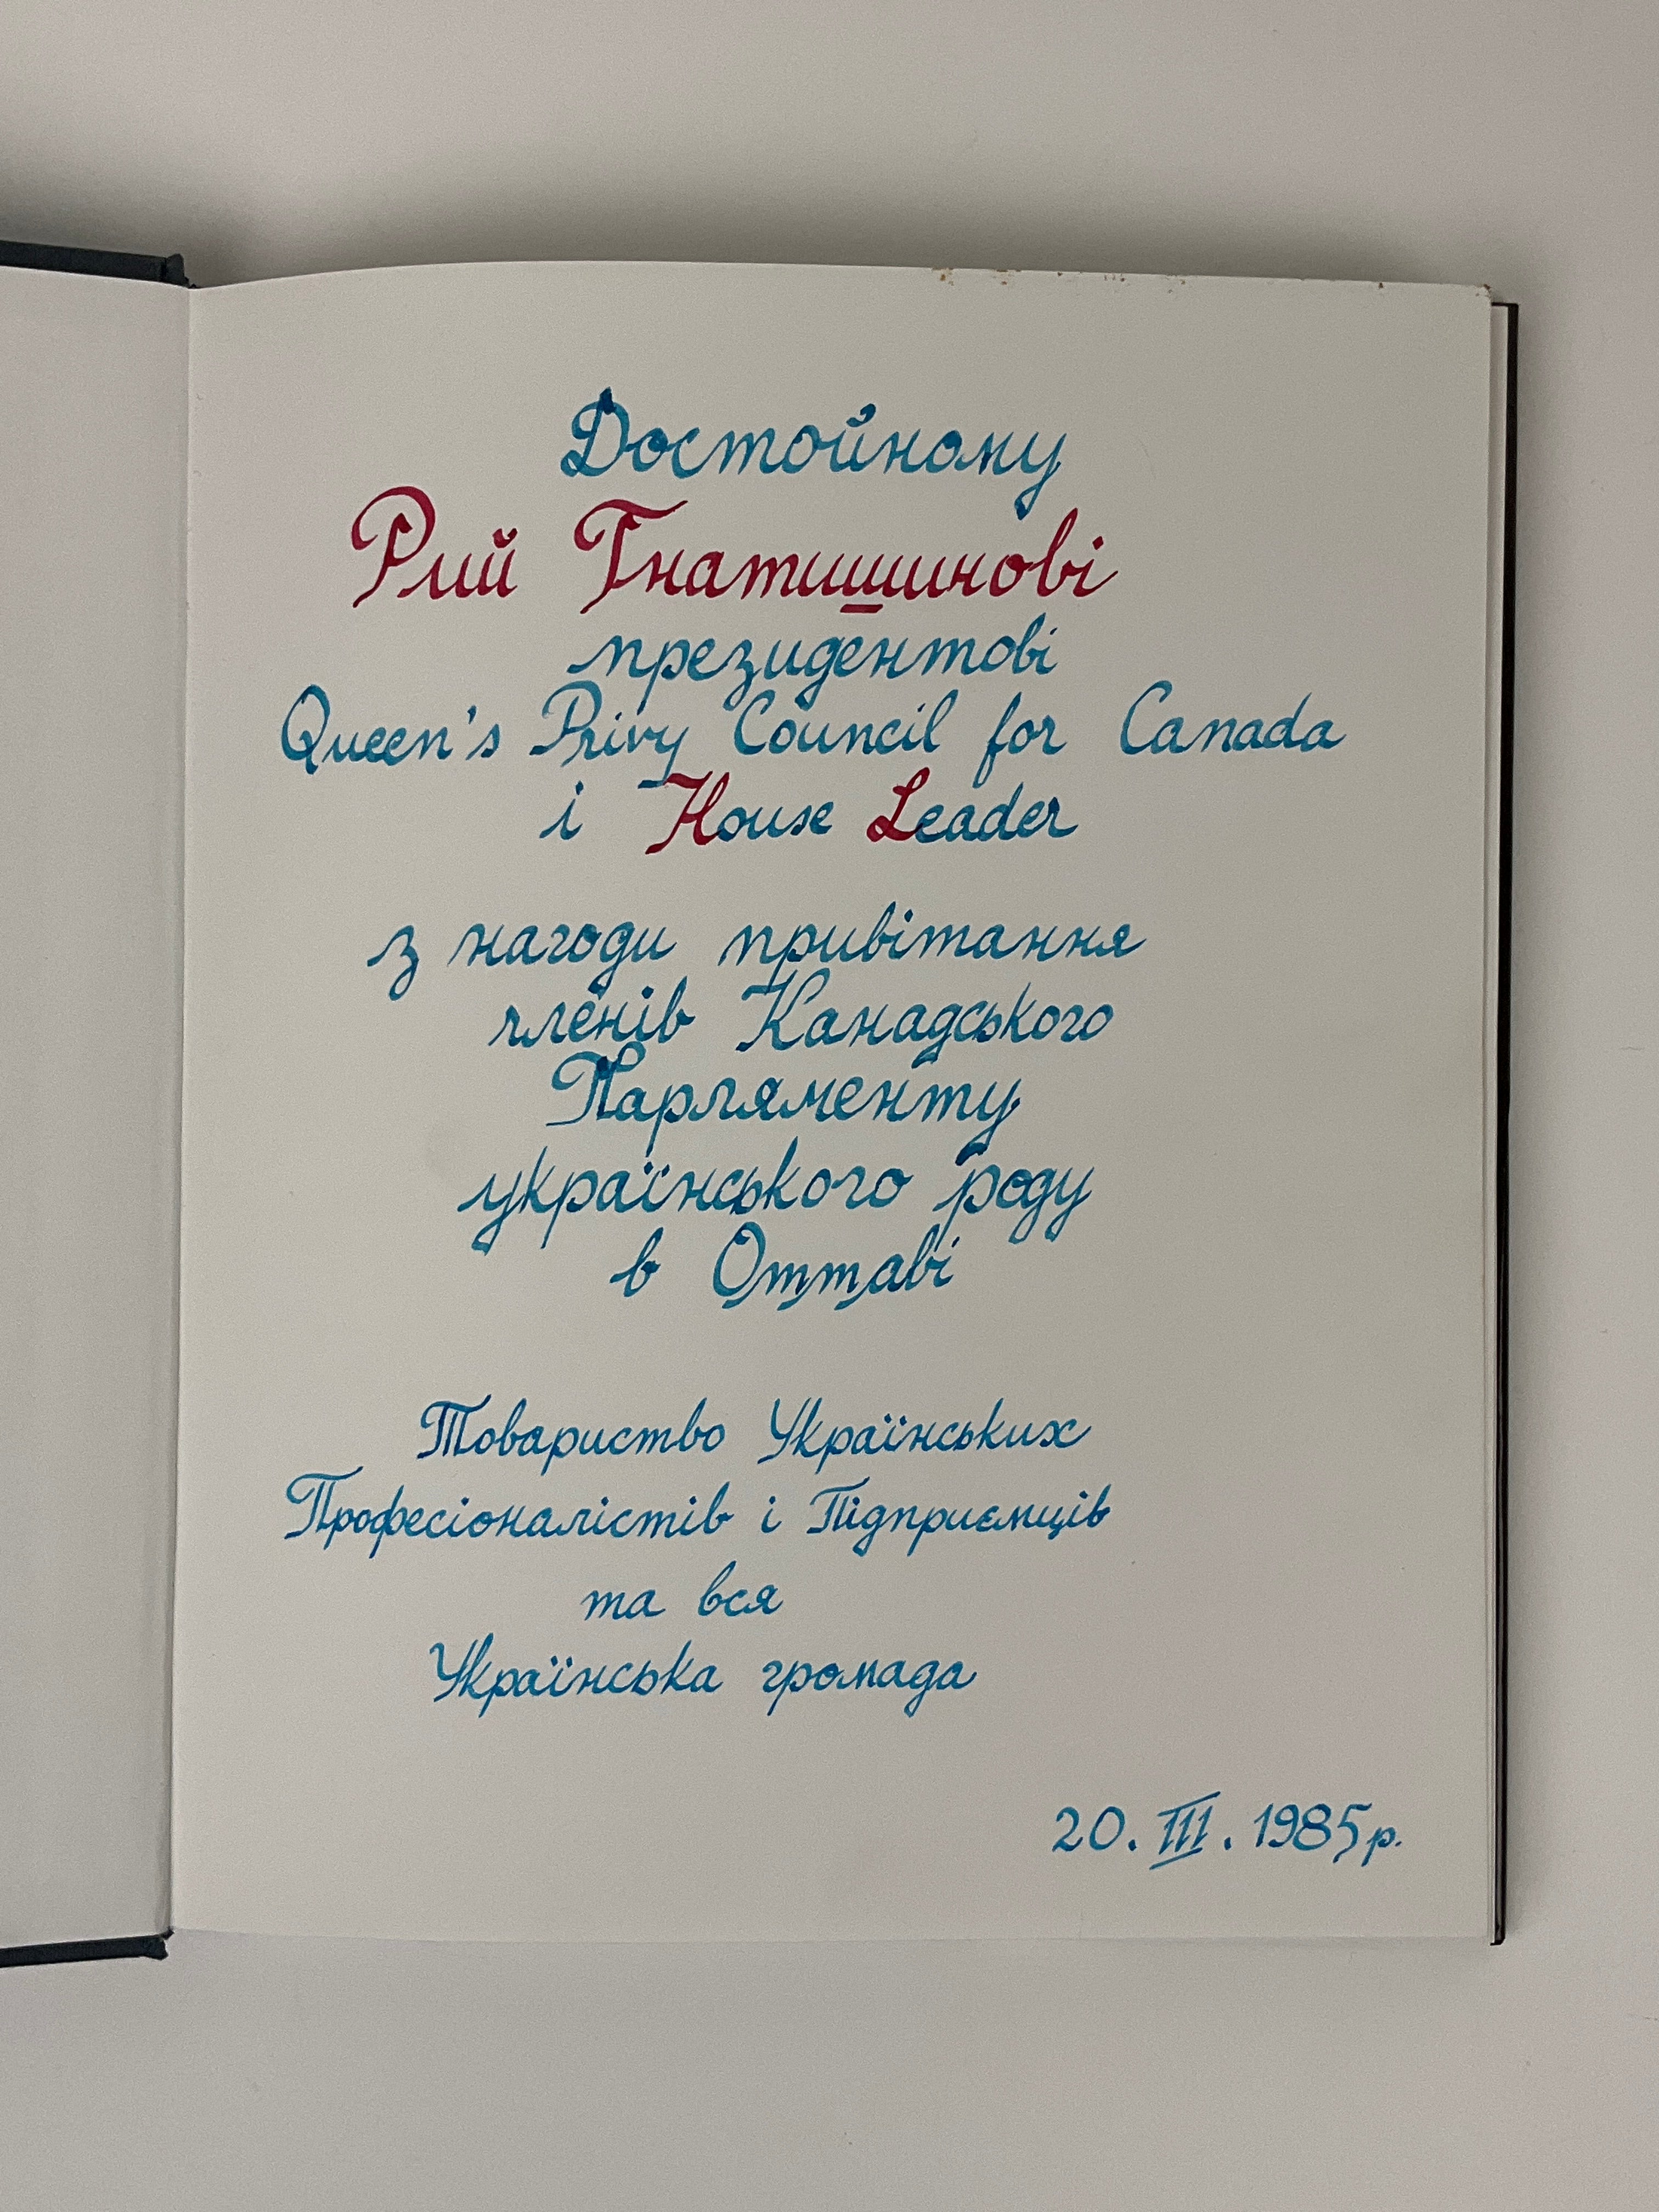 Достойному
Рий Гнатишинові
президентові
Queen's Privy Council for Canada
і House Leader
з нагоди привітання
членів Канадського
Парляменту
українського роду
в Оттаві
Товариство Українських
Професіоналістів і Підприємців
та вся
Українська громада
20. III. 1985 р.